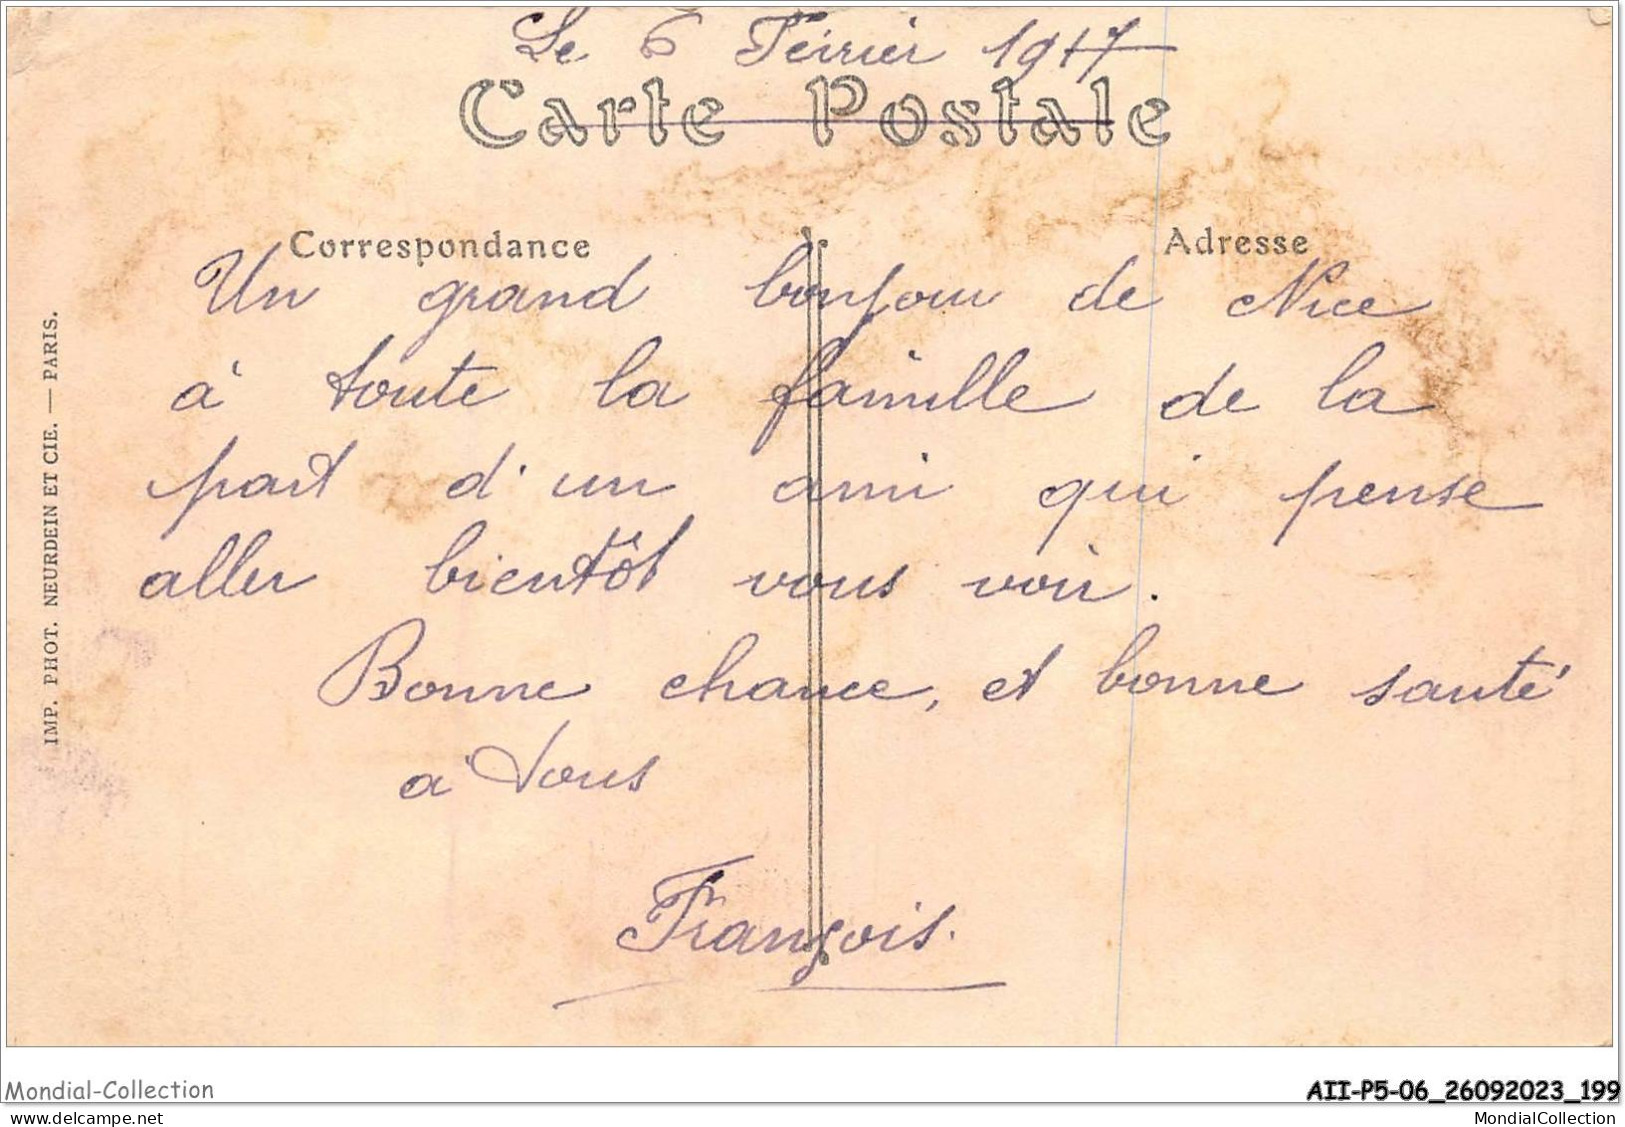 Le 6 Février 1917
Carte Postale
Correspondance
Adresse
Un grand bonjour de Nice
à toute la famille de la
part d'un ami qui pense
aller bientôt vous voir.
Bonne chance, et bonne santé
à tous
François.
IMP. PHOT. NEURDEIN ET CIE. — PARIS.
Mondial-Collection
AII-P5-06_26092023_199
www.delcampe.net
MondialCollection